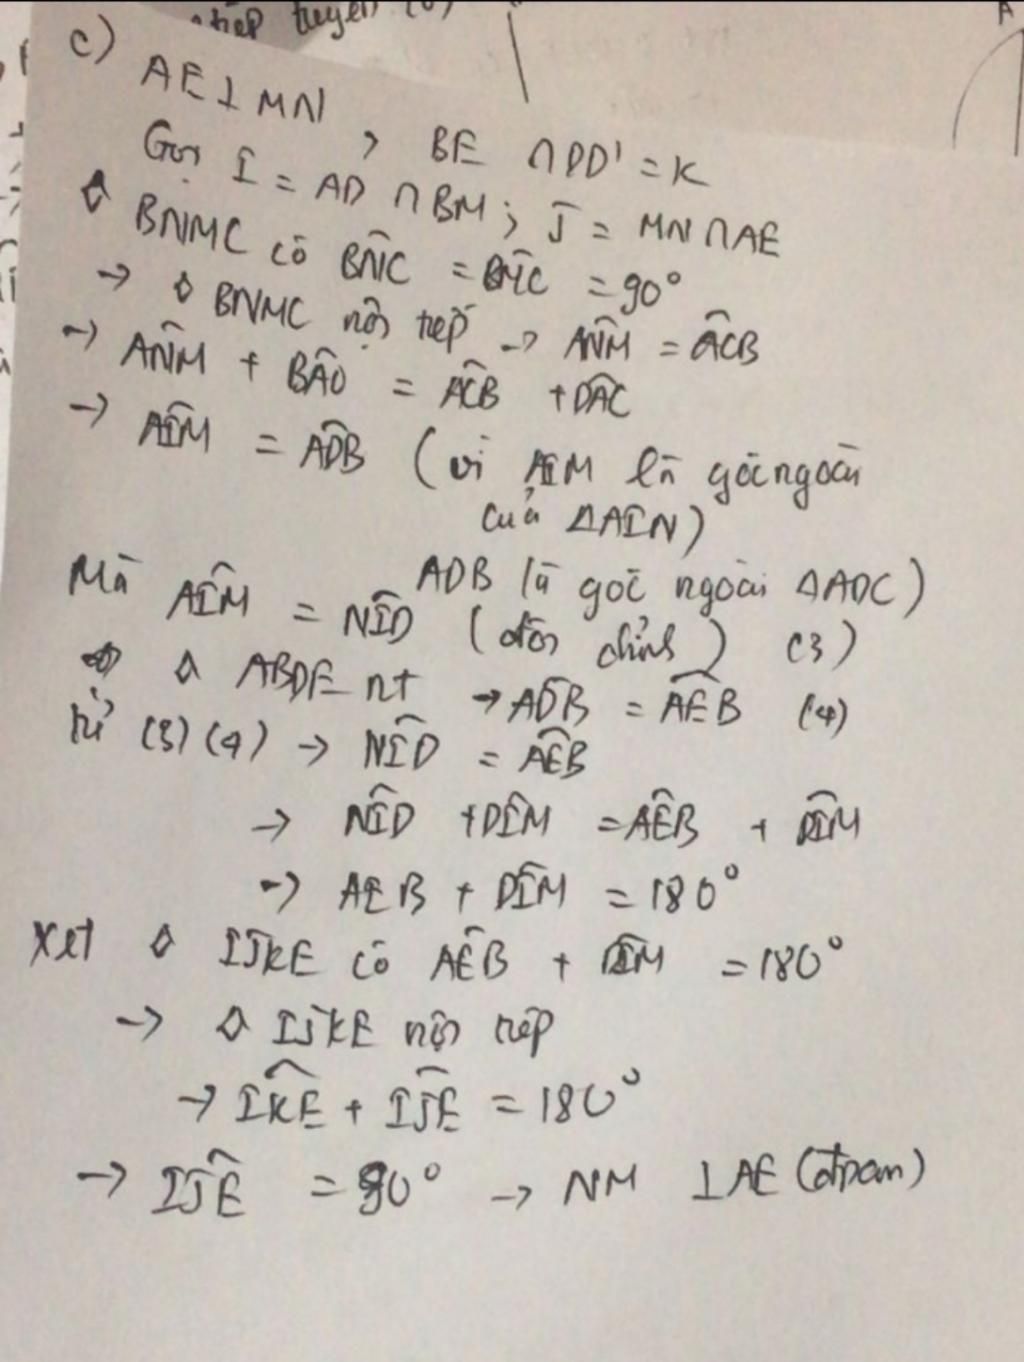 tiếp tuyến (O)
A
c)
AE⊥MN
Gọi I = AD ∩ BM ; BE ∩ DD' = K
J = MN ∩ AE
◊ BNMC có BN̂C = BM̂C = 90°
→ ◊ BNMC nội tiếp → AN̂M = AĈB
→ AN̂M + BÂD = AĈB + DÂC
→ AÎM = AD̂B (vì AIM là góc ngoài
của ΔAIN)
ADB là góc ngoài ΔADC)
Mà AÎM = NÎD (đối đỉnh) (3)
◊ ABDE nt → AD̂B = AÊB (4)
từ (3) (4) → NÎD = AÊB
→ NÎD + DÎM = AÊB + DÎM
→ AEB + DÎM = 180°
Xét ◊ IJKE có AÊB + DÎM = 180°
→ ◊ IJKE nội tiếp
→ IK̂E + IĴE = 180°
→ IĴE = 90° → NM ⊥ AE (đpcm)